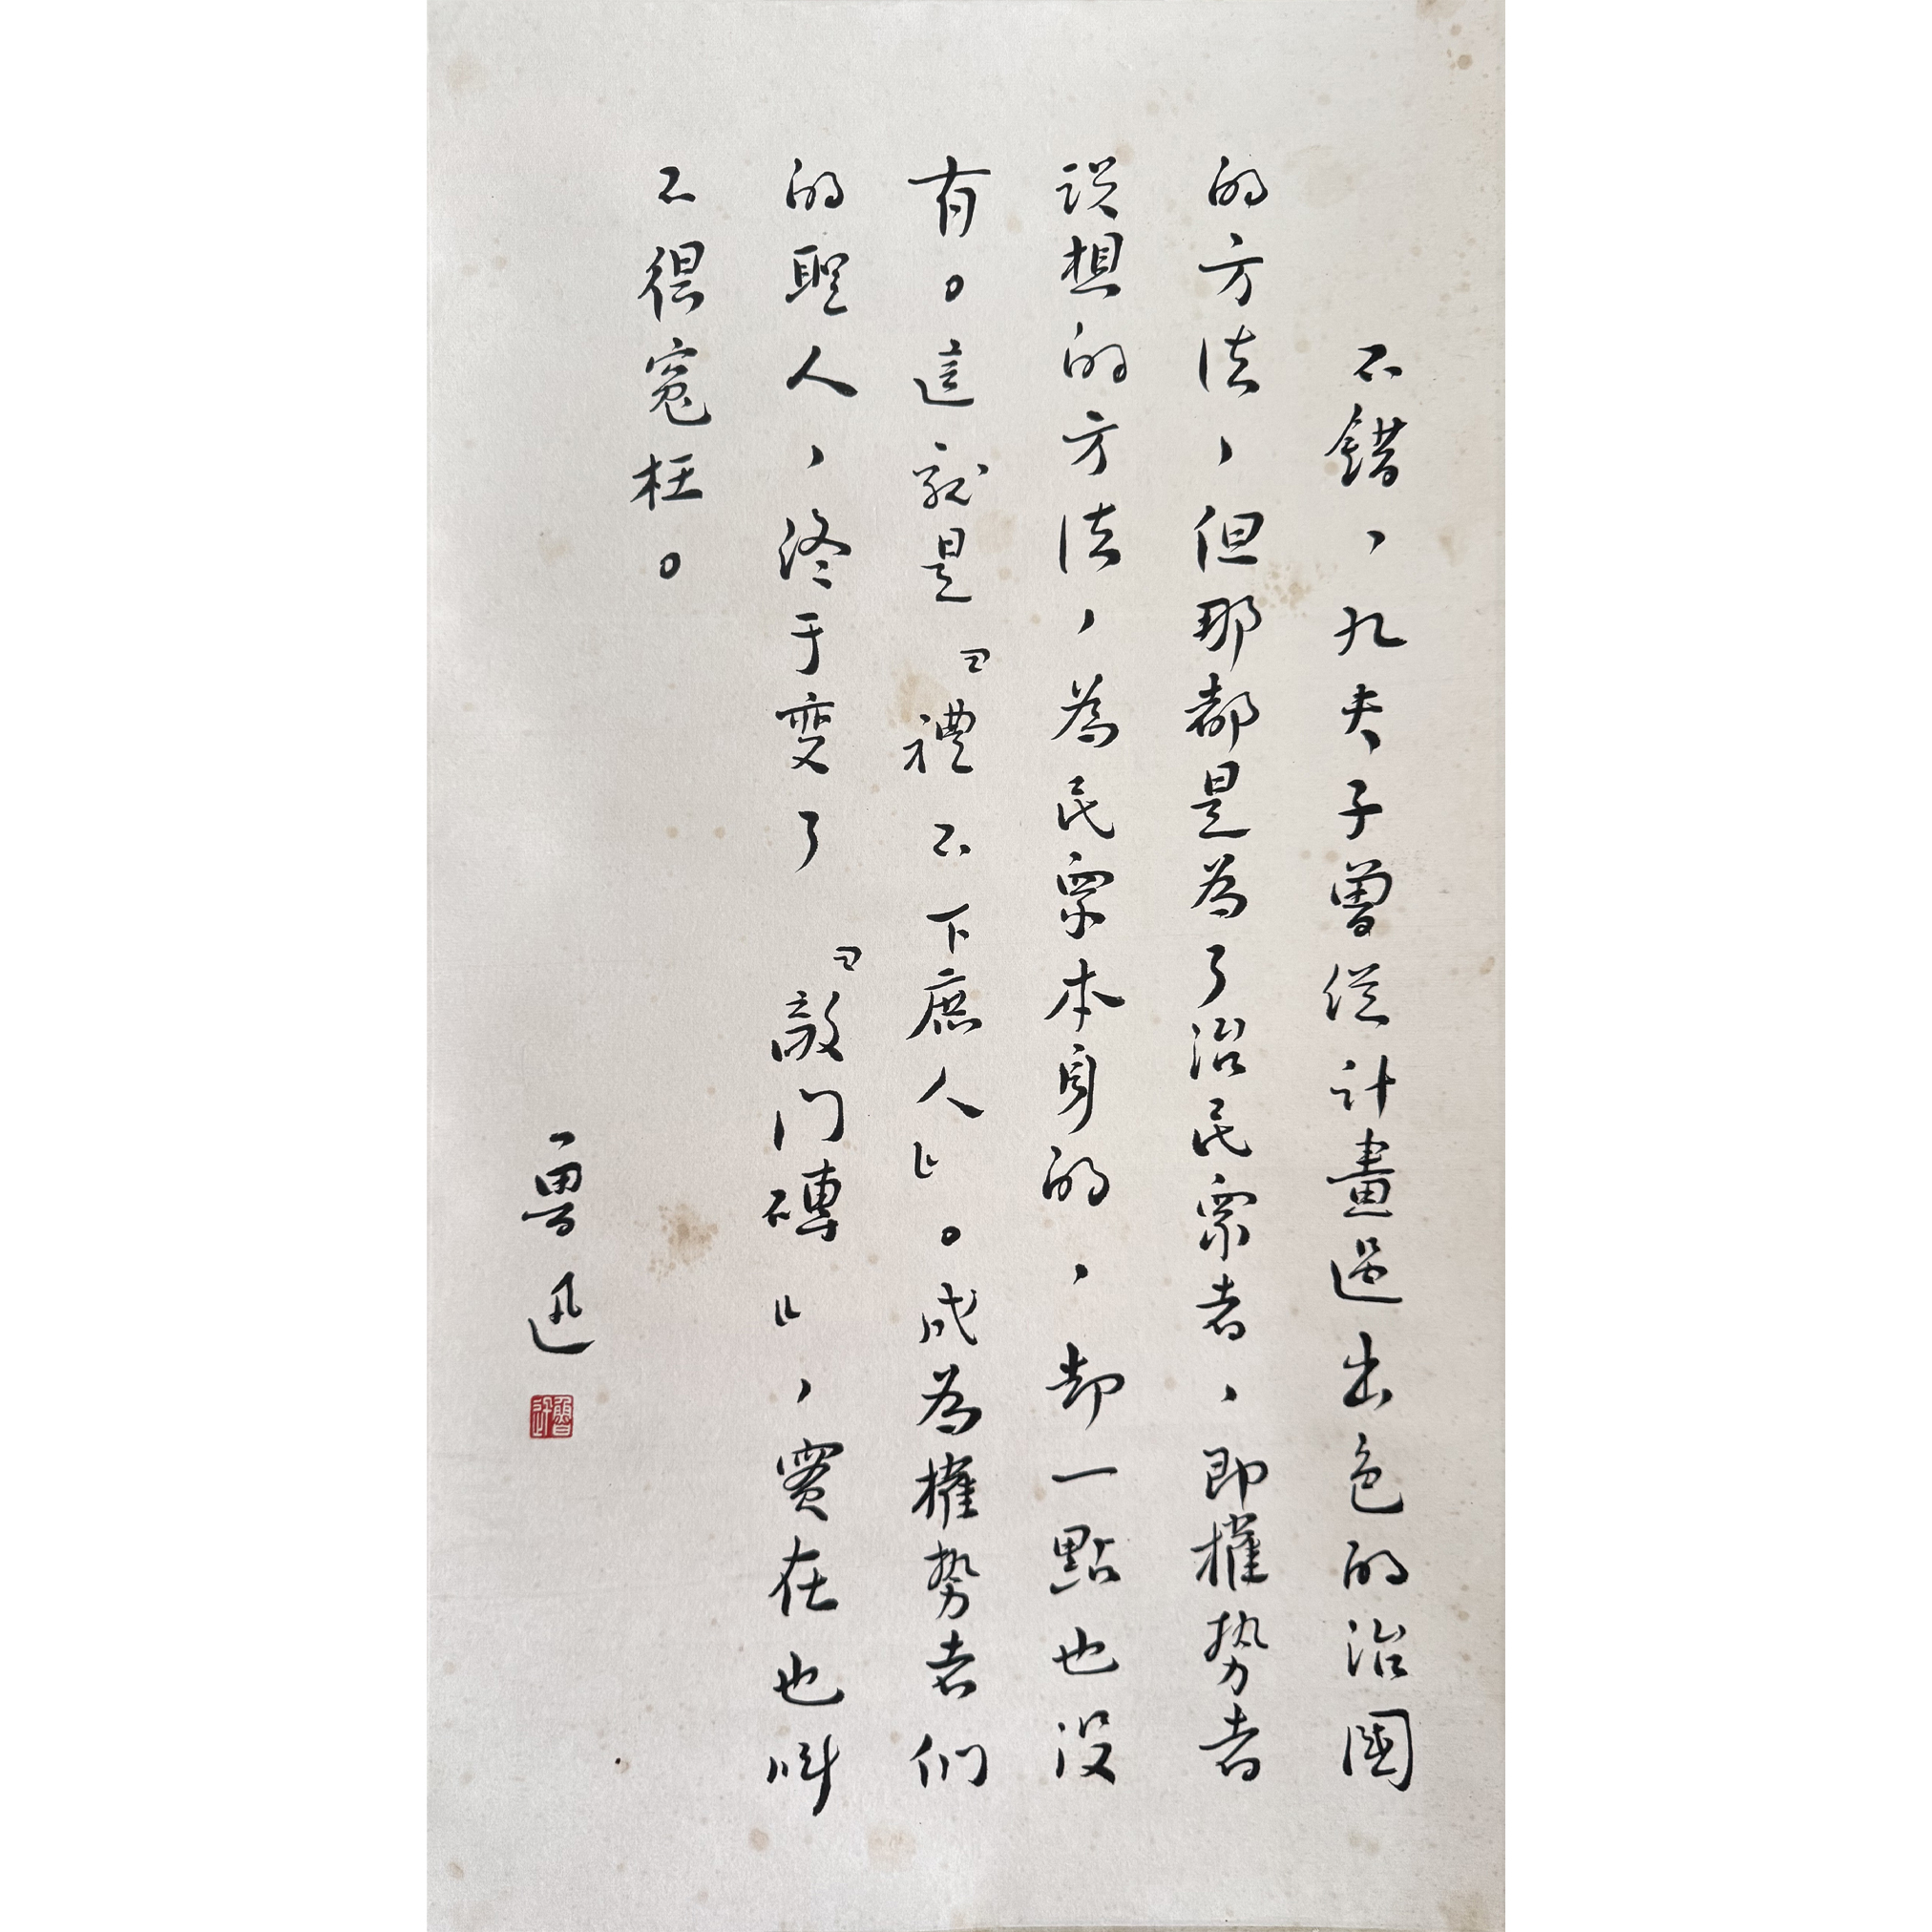 不錯，孔夫子曾经計畫過出色的治國
的方法，但那都是為了治民眾者，即權势者
設想的方法，為民眾本身的，却一點也没
有。這就是『禮不下庶人』。成為權势者们
的聖人，终于变了『敲门磚』，實在也叫
不得冤枉。
魯迅
魯迅